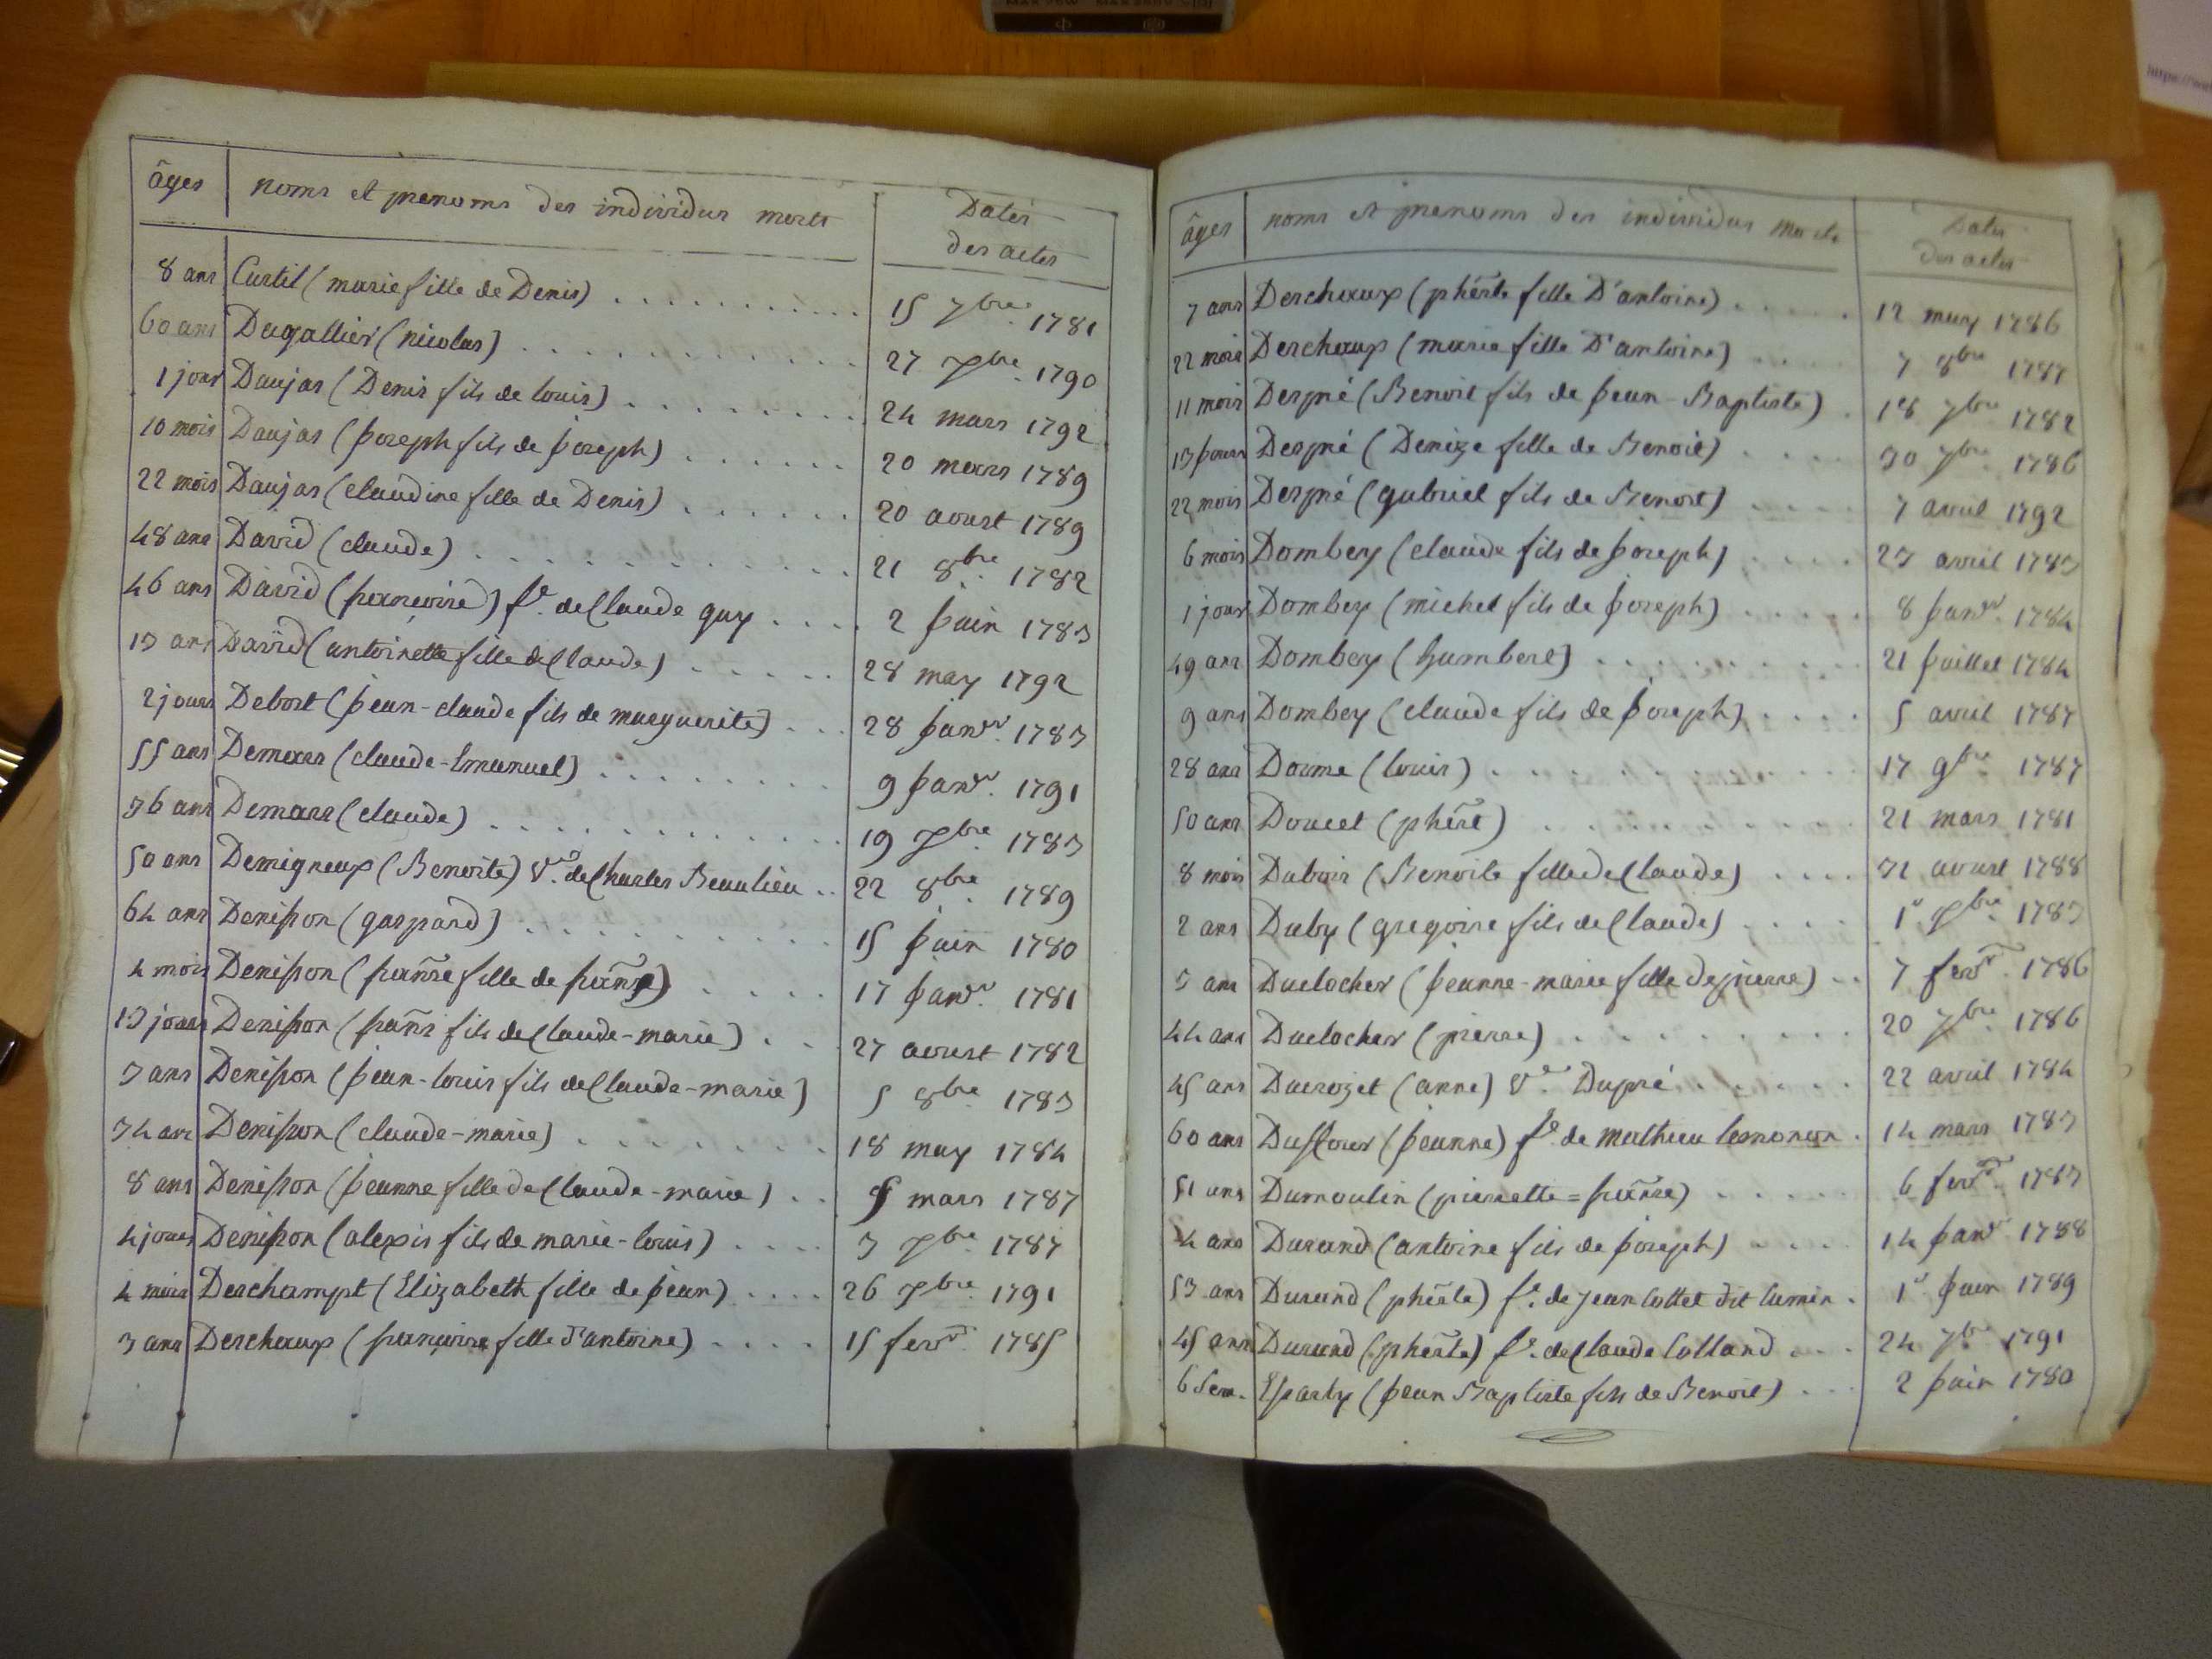 âges noms et prenoms des individus morts Dates des actes
8 ans Curtil (marie fille de Denis) 15 7bre 1781
60 ans Dagallier (nicolas) 27 xbre 1790
1 jour Daujas (Denis fils de louis) 24 mars 1792
10 mois Daujas (joseph fils de joseph) 20 mars 1789
22 mois Daujas (claudine fille de Denis) 20 aoust 1789
48 ans David (claude) 21 8bre 1782
46 ans David (francoise) fe. de Claude guy 2 juin 1783
13 ans David (antoinette fille de Claude) 28 may 1792
2 jours Debost (jean-claude fils de marguerite) 28 janvr. 1783
55 ans Demars (claude-Emanuel) 9 janvr. 1791
36 ans Demars (claude) 19 xbre 1783
50 ans Demigneux (Benoite) Ve. de Charles Beaulieu 22 8bre 1789
64 ans Denisson (gaspard) 15 juin 1780
4 mois Denisson (franse fille de frans) 17 janvr. 1781
13 jours Denisson (frans fils de Claude-marie) 27 aoust 1782
3 ans Denisson (jean-louis fils de Claude-marie) 5 8bre 1783
34 ans Denisson (claude-marie) 18 may 1784
8 ans Denisson (jeanne fille de Claude-marie) 5 mars 1787
4 jours Denisson (alexis fils de marie-louis) 3 xbre 1787
4 mois Deschampt (Elizabeth fille de jean) 26 xbre 1791
3 ans Deschaux (francoise fille d'antoine) 15 fevr. 1785
âges noms et prenoms des individus morts Dates des actes
7 ans Deschaux (phérte fille D'antoine) 12 may 1786
22 mois Deschaux (marie fille D'antoine) 7 8bre 1787
11 mois Despré (Benoit fils de jean-Baptiste) 18 7bre 1782
13 jours Despré (Denize fille de Benoit) 30 7bre 1786
22 mois Despré (gabriel fils de Benoit) 7 avril 1792
6 mois Dombey (claude fils de joseph) 23 avril 1783
1 jour Dombey (michel fils de joseph) 8 janvr. 1784
49 ans Dombey (humbert) 21 juillet 1784
9 ans Dombey (claude fils de joseph) 5 avril 1787
28 ans Dorme (louis) 17 9bre 1787
50 ans Doucet (phert) 21 mars 1781
8 mois Dubois (Benoite fille de Claude) 31 aoust 1788
2 ans Duby (gregoire fils de Claude) 1r xbre 1783
3 ans Duclocher (jeanne-marie fille de pierre) 7 fevr. 1786
44 ans Duclocher (pierre) 20 7bre 1786
45 ans Ducrozet (anne) Ve. Dupré 22 avril 1784
60 ans Duffour (jeanne) fe. de mathieu 14 mars 1783
51 ans Dumoulin (pierrette=franse) 6 fevr. 1783
4 ans Durand (antoine fils de joseph) 14 janvr 1788
53 ans Durand (pherte) fe. de jean Collet dit lumin 1r juin 1789
45 ans Durand (pherte) fe. de Claude Colland 24 7bre 1791
6 sem. Esparty (jean Baptiste fils de Benoit) 2 juin 1780